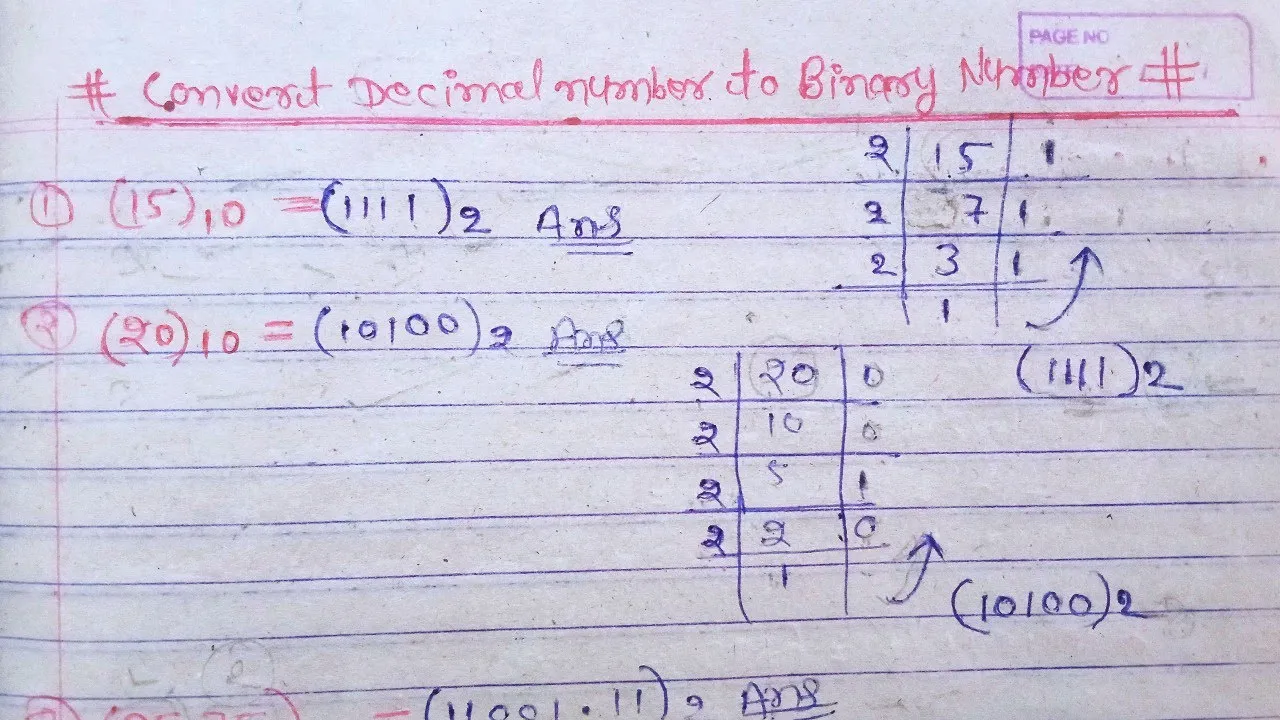 PAGE NO
# Convert Decimal number to Binary Number #
① (15)10 = (1111)2 Ans
2 | 15 | 1
2 | 7 | 1
2 | 3 | 1
1
(1111)2
② (20)10 = (10100)2 Ans
2 | 20 | 0
2 | 10 | 0
2 | 5 | 1
2 | 2 | 0
1
(10100)2
= (11001.11)2 Ans